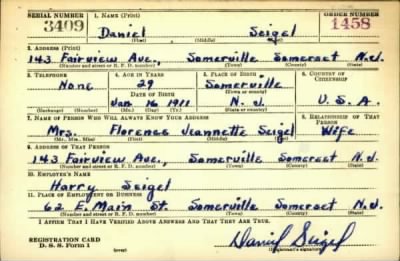 SERIAL NUMBER 1. NAME (Print) ORDER NUMBER
3409 Daniel Seigel 1458
(First) (Middle) (Last)
2. ADDRESS (Print)
143 Fairview Ave., Somerville Somerset N.J.
(Number and street or R. F. D. number) (Town) (County) (State)
3. TELEPHONE 4. AGE IN YEARS 5. PLACE OF BIRTH 6. COUNTRY OF CITIZENSHIP
None 29 Somerville
DATE OF BIRTH (Town or county)
Jan 16 1911 N. J. U. S. A.
(Exchange) (Number) (Mo.) (Day) (Yr.) (State or country)
7. NAME OF PERSON WHO WILL ALWAYS KNOW YOUR ADDRESS 8. RELATIONSHIP OF THAT PERSON
Mrs. Florence Jeannette Seigel Wife
(Mr., Mrs., Miss) (First) (Middle) (Last)
9. ADDRESS OF THAT PERSON
143 Fairview Ave., Somerville Somerset N.J.
(Number and street or R. F. D. number) (Town) (County) (State)
10. EMPLOYER'S NAME
Harry Seigel
11. PLACE OF EMPLOYMENT OR BUSINESS
62 E. Main St. Somerville Somerset N.J.
(Number and street or R. F. D. number) (Town) (County) (State)
I AFFIRM THAT I HAVE VERIFIED ABOVE ANSWERS AND THAT THEY ARE TRUE.
REGISTRATION CARD
D. S. S. Form 1 (over) Daniel Seigel
(Registrant's signature)